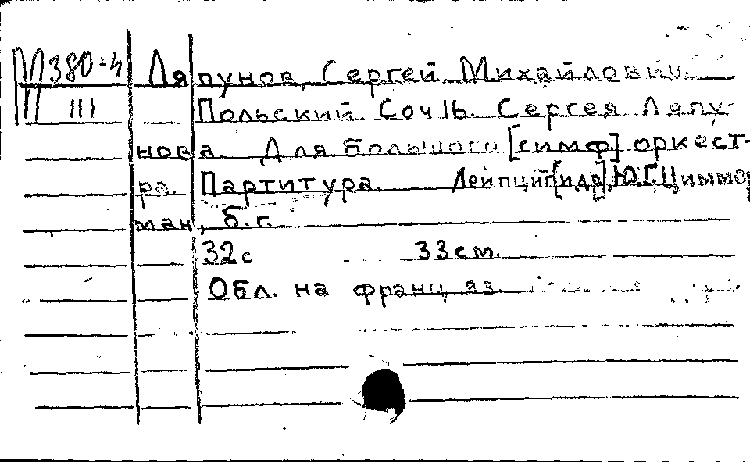 М380-4 Ляпунов, Сергей Михайлович.
П III Польский. Соч 16. Сергея Ляпу-
нова. Для большого [симф] оркест-
ра. Партитура. Лейпциг [и др], Ю.Г.Циммер
ман, б.г.
32с 33см.
Обл. на франц. яз.